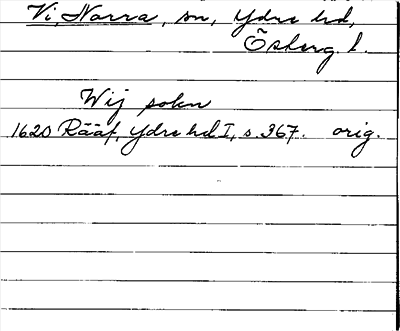 Vi, Norra, sn, Ydre hd,
Österg. l.
Wij sokn
1620 Rääf, Ydre hd I, s. 367. orig.